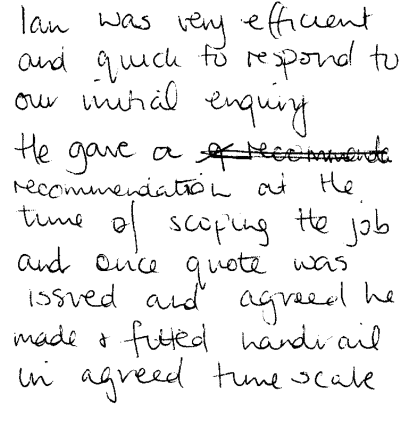 Ian was very efficient
and quick to respond to
our initial enquiry
He gave a
recommendation at the
time of scoping the job
and once quote was
issued and agreed he
made & fitted handrail
in agreed timescale